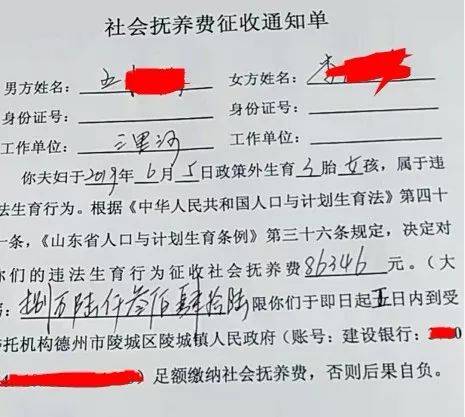 社会抚养费征收通知单
男方姓名: 女方姓名:李
身份证号: 身份证号:
工作单位:三里河 工作单位:
你夫妇于2019年6月5日政策外生育 胎女孩,属于违
法生育行为。根据《中华人民共和国人口与计划生育法》第四十
一条,《山东省人口与计划生育条例》第三十六条规定,决定对
你们的违法生育行为征收社会抚养费86346元。(大
:捌万陆仟叁佰肆拾陆限你们于即日起五日内到受
托机构德州市陵城区陵城镇人民政府(账号:建设银行:
足额缴纳社会抚养费,否则后果自负。